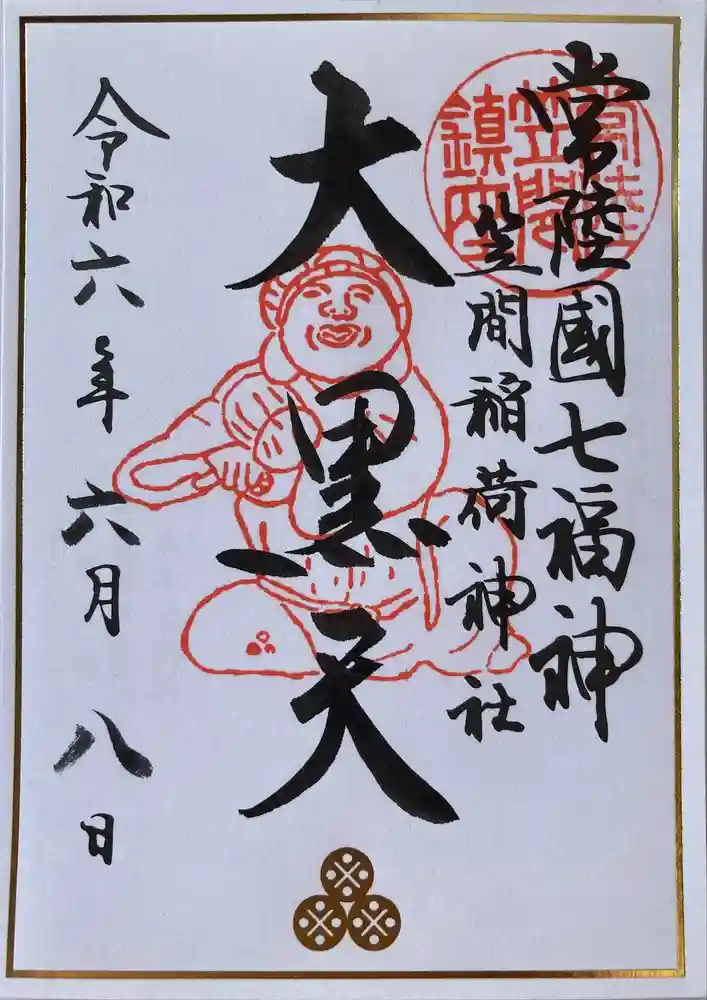 常陸國七福神
笠間稲荷神社
常陸
笠間
鎮座
大黒天
令和六年六月八日